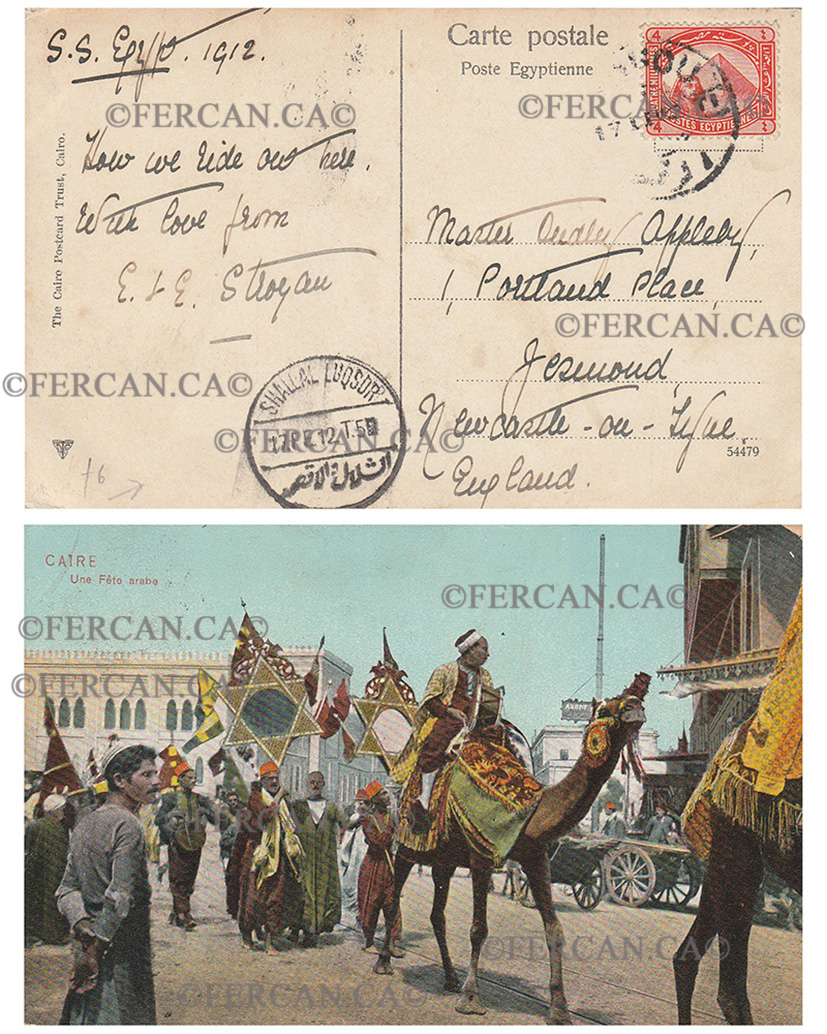 S.S. Egypt. 1912.
How we ride out here.
With love from
E. & E. Stroyan
The Cairo Postcard Trust, Cairo.
Carte postale
Poste Egyptienne
4
4
POSTES EGYPTIENNES
4
4
17
Master Dudley Appleby,
1, Portland Place,
Jesmond,
Newcastle-on-Tyne.
England.
54479
SHALLAL LUQSOR
12.T.5
الشلال الاقصر
©FERCAN.CA©
©FERCAN.CA©
©FERCAN.CA©
©FERCAN.CA©
©FERCAN.CA©
CAIRE
Une Fête arabe
©FERCAN.CA©
©FERCAN.CA©
©FERCAN.CA©
©FERCAN.CA©
©FERCAN.CA©
©FERCAN.CA©
©FERCAN.CA©
©FERCAN.CA©